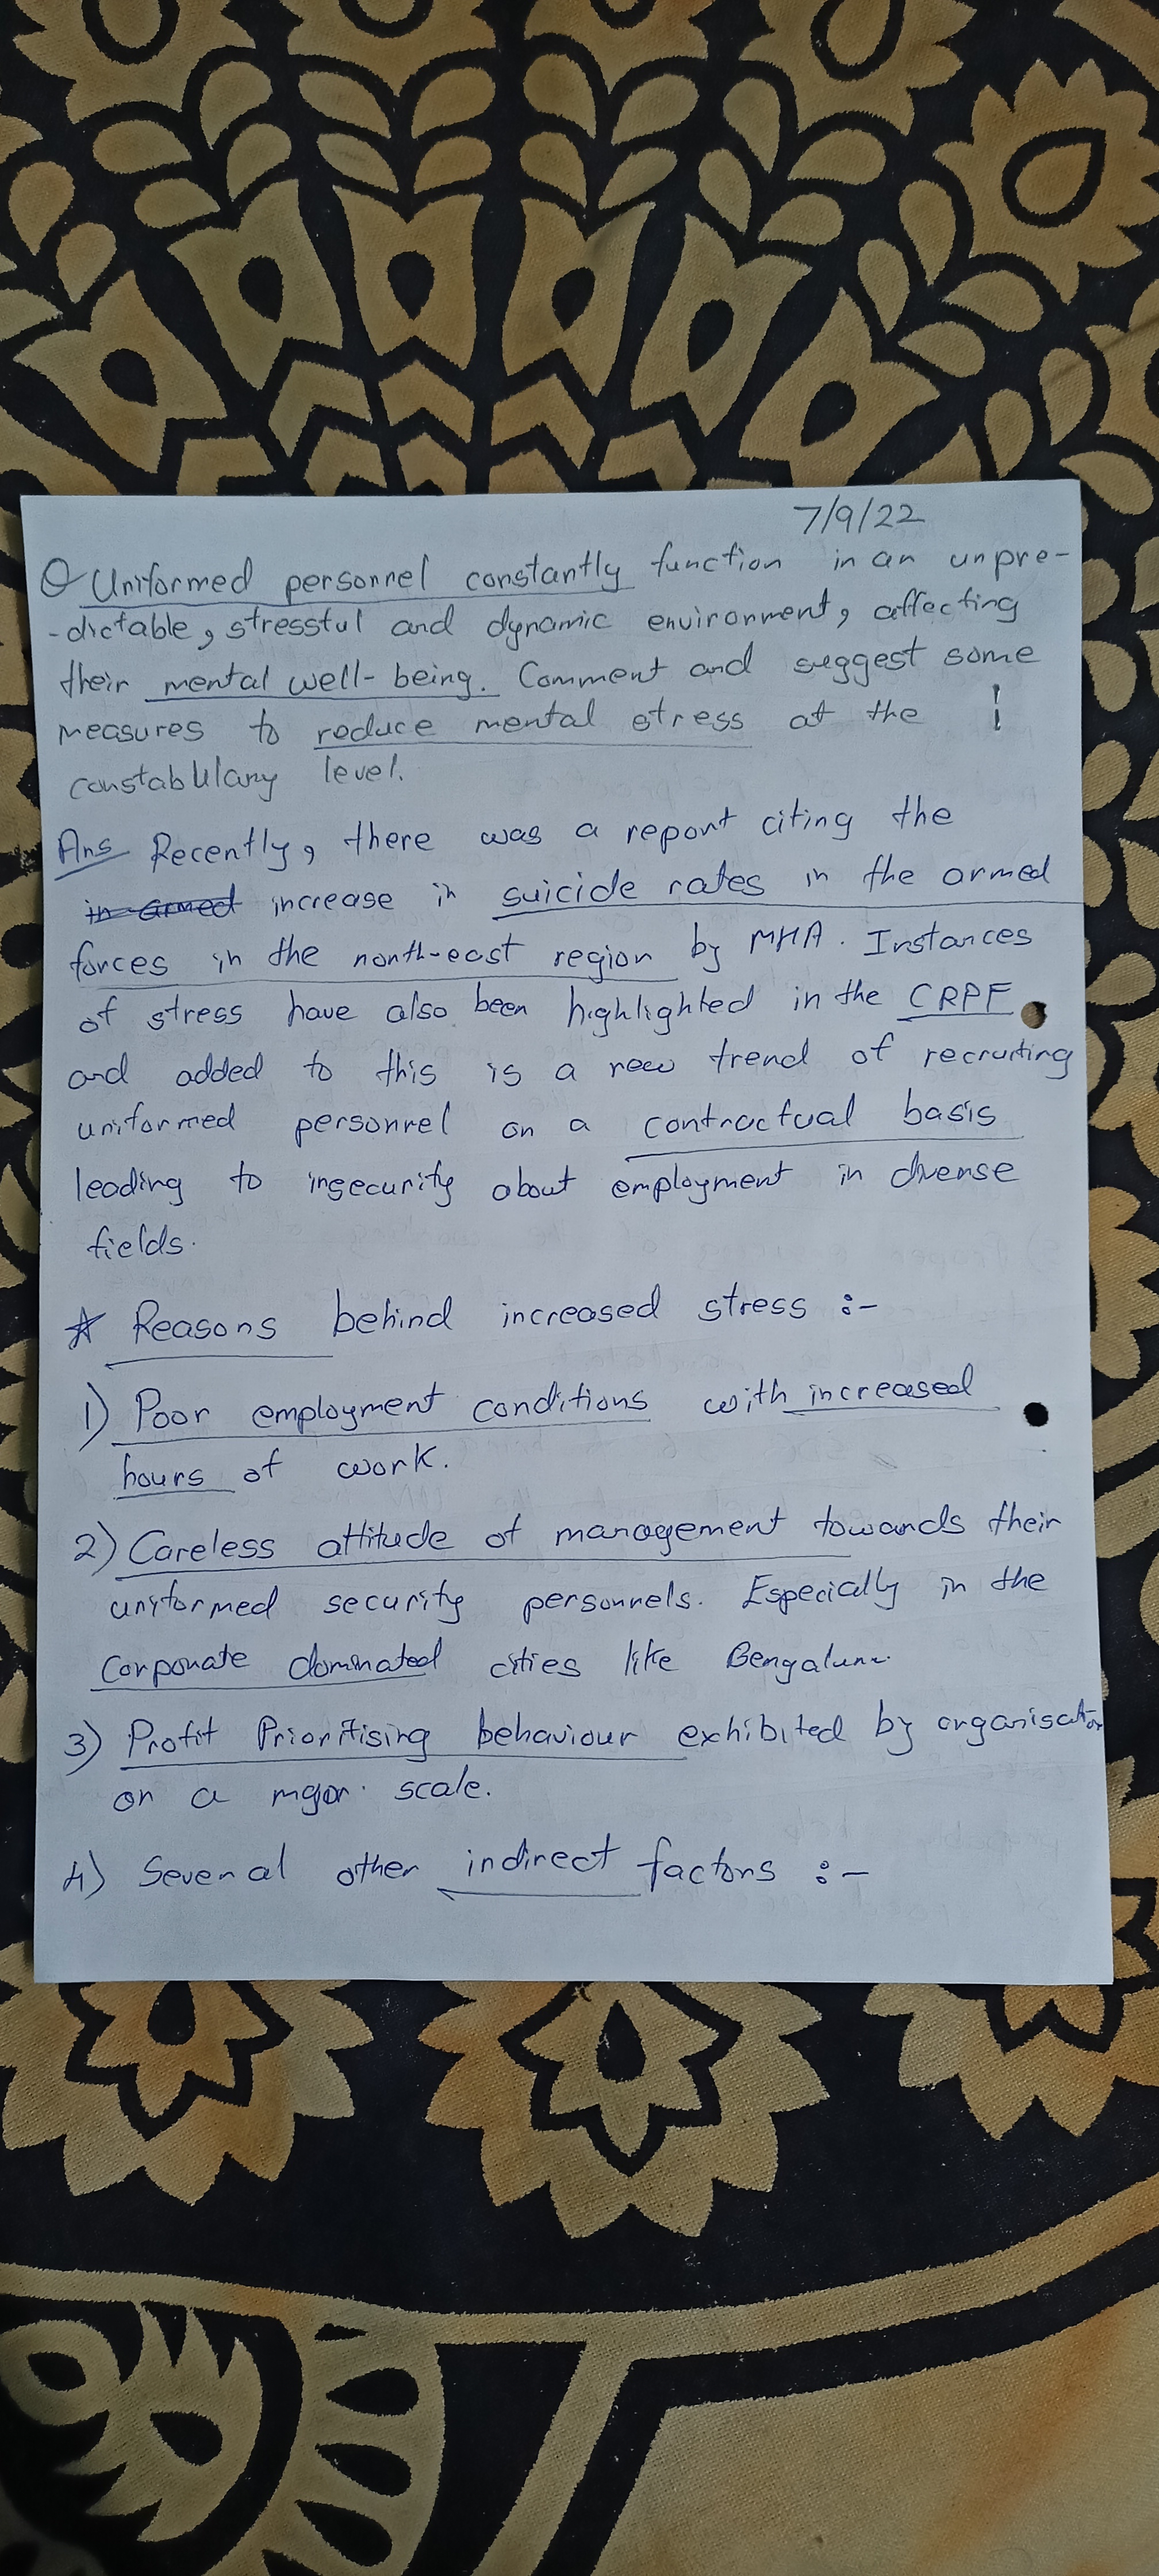 7/9/22
Q Uniformed personnel constantly function in an unpre-
-dictable, stressful and dynamic environment, affecting
their mental well-being. Comment and suggest some
measures to reduce mental stress at the
constabulary level.
Ans Recently, there was a report citing the
in armed increase in suicide rates in the armed
forces in the north-east region by MHA. Instances
of stress have also been highlighted in the CRPF
and added to this is a new trend of recruiting
uniformed personnel on a contractual basis
leading to insecurity about employment in diverse
fields.
☆ Reasons behind increased stress :-
1) Poor employment conditions with increased
hours of work.
2) Careless attitude of management towards their
uniformed security personnels. Especially in the
corporate dominated cities like Bengaluru.
3) Profit Prioritising behaviour exhibited by organisation
on a major scale.
4) Several other indirect factors :-